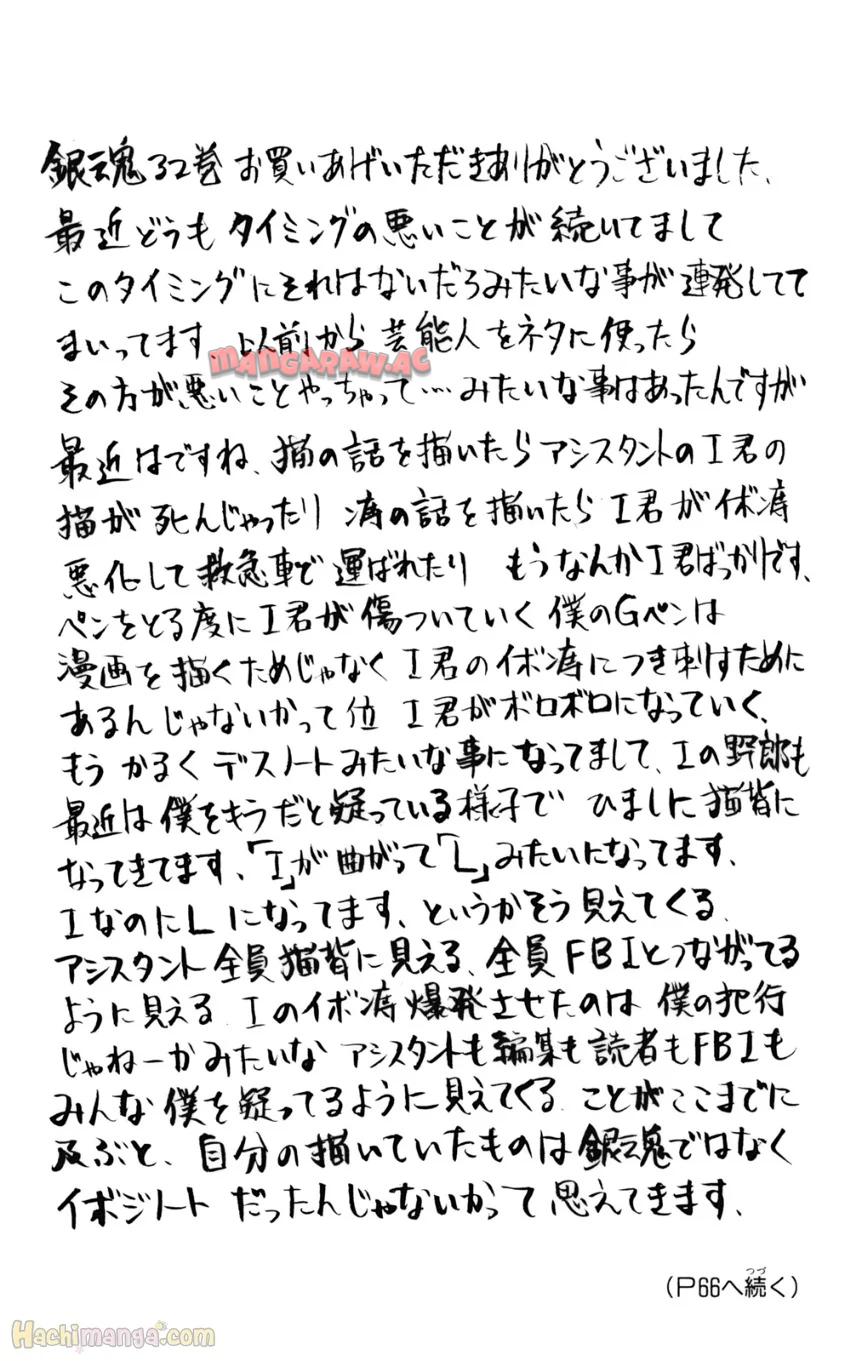 銀魂32巻お買いあげいただきありがとうございました、
最近どうもタイミングの悪いことが続いてまして
このタイミングにそれはないだろみたいな事が連発してて
まいってます、以前から芸能人をネタに使ったら
MANGARAW.AC
その方が悪いことやっちゃって…みたいな事はあったんですが
最近はですね、猫の話を描いたらアシスタントのI君の
猫が死んじゃったり 痔の話を描いたらI君がイボ痔
悪化して救急車で運ばれたり もうなんかI君ばっかりです、
ペンをとる度にI君が傷ついていく 僕のGペンは
漫画を描くためじゃなくI君のイボ痔につき刺すために
あるんじゃないかって位 I君がボロボロになっていく、
もうかるくデスノートみたいな事になってまして、Iの野郎も
最近は僕をキラだと疑っている様子で ひましに猫背に
なってきてます、「I」が曲がって「L」みたいになってます、
IなのにLになってます、というかそう見えてくる、
アシスタント全員猫背に見える、全員FBIとつながってる
ように見える Iのイボ痔爆発させたのは 僕の犯行
じゃねーかみたいな アシスタントも編集も読者もFBIも
みんな僕を疑ってるように見えてくる ことがここまでに
及ぶと、自分の描いていたものは銀魂ではなく
イボジノート だったんじゃないかって思えてきます、
(P66へ続く)
つづ
Hachimanga.com